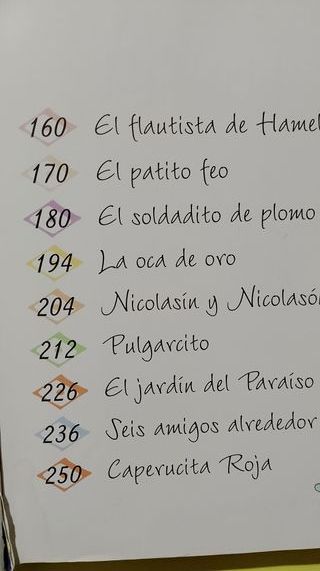 160 El flautista de Hamel
170 El patito feo
180 El soldadito de plomo
194 La oca de oro
204 Nicolasín y Nicolasó
212 Pulgarcito
226 El jardín del Paraíso
236 Seis amigos alrededor
250 Caperucita Roja